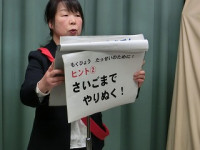 もくひょう たっせいのために
ヒント②
さいごまで
やりぬく！